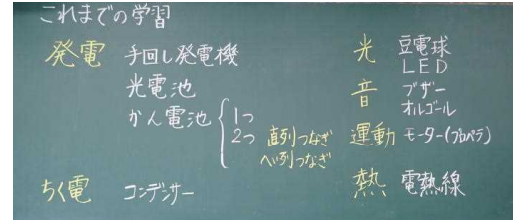 これまでの学習
発電 手回し発電機
光電池
かん電池 1つ
2つ 直列つなぎ
へい列つなぎ
ちく電 コンデンサー
光 豆電球
LED
音 ブザー
オルゴール
運動 モーター(プロペラ)
熱 電熱線